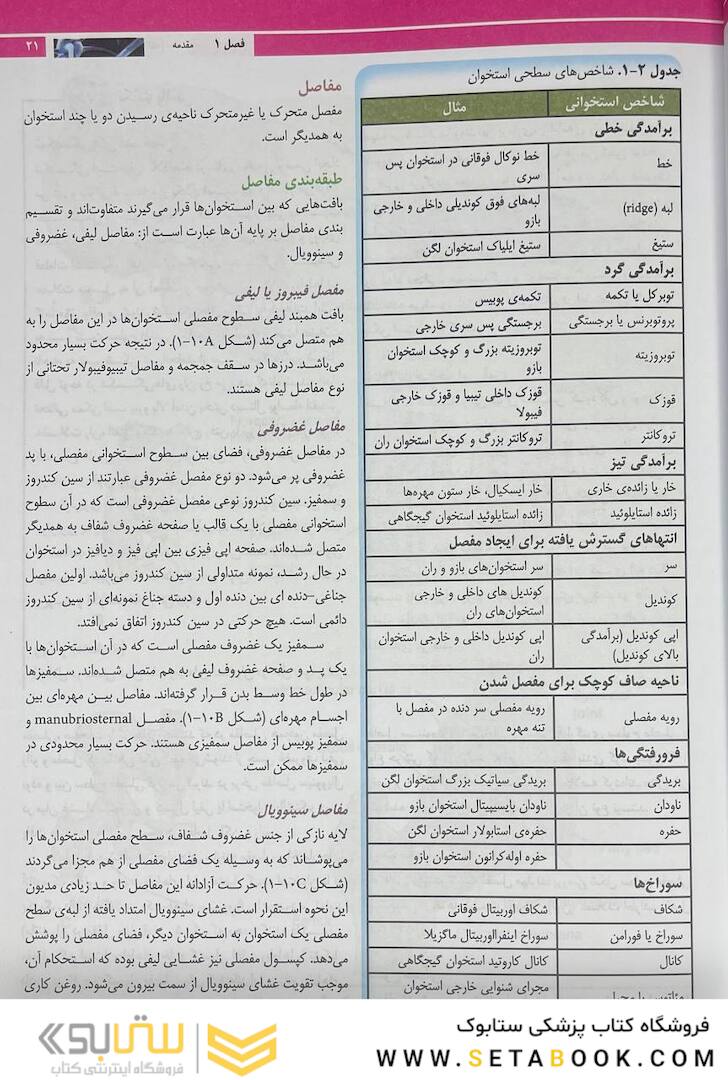 فصل ۱ مقدمه ۲۱
جدول ۲-۱. شاخص‌های سطحی استخوان
شاخص استخوانی مثال
برآمدگی خطی
خط خط نوکال فوقانی در استخوان پس
سری
لبه (ridge) لبه‌های فوق کوندیلی داخلی و خارجی
بازو
ستیغ ستیغ ایلیاک استخوان لگن
برآمدگی گرد
توبرکل یا تکمه تکمه‌ی پوبیس
پروتوبرنس یا برجستگی برجستگی پس سری خارجی
توبروزیته توبروزیته بزرگ و کوچک استخوان
بازو
قوزک قوزک داخلی تیبیا و قوزک خارجی
فیبولا
تروکانتر تروکانتر بزرگ و کوچک استخوان ران
برآمدگی تیز
خار یا زائده‌ی خاری خار ایسکیال، خار ستون مهره‌ها
زائده استایلوئید زائده استایلوئید استخوان گیجگاهی
انتهاهای گسترش یافته برای ایجاد مفصل
سر سر استخوان‌های بازو و ران
کوندیل کوندیل های داخلی و خارجی
استخوان‌های ران
اپی کوندیل (برآمدگی
بالای کوندیل) اپی کوندیل داخلی و خارجی استخوان
ران
ناحیه صاف کوچک برای مفصل شدن
رویه مفصلی رویه مفصلی سر دنده در مفصل با
تنه مهره
فرورفتگی‌ها
بریدگی بریدگی سیاتیک بزرگ استخوان لگن
ناودان ناودان بایسیپیتال استخوان بازو
حفره حفره‌ی استابولار استخوان لگن
حفره اوله‌کرانون استخوان بازو
سوراخ‌ها
شکاف شکاف اوربیتال فوقانی
سوراخ یا فورامن سوراخ اینفرااوربیتال ماگزیلا
کانال کانال کاروتید استخوان گیجگاهی
مجرای شنوایی خارجی استخوان
مفاصل
مفصل متحرک یا غیرمتحرک ناحیه‌ی رسیدن دو یا چند استخوان
به همدیگر است.
طبقه‌بندی مفاصل
بافت‌هایی که بین استخوان‌ها قرار می‌گیرند متفاوت‌اند و تقسیم
بندی مفاصل بر پایه آن‌ها عبارت است از: مفاصل لیفی، غضروفی
و سینوویال.
مفصل فیبروز یا لیفی
بافت همبند لیفی سطوح مفصلی استخوان‌ها در این مفاصل را به
هم متصل می‌کند (شکل ۱۰A-۱). در نتیجه حرکت بسیار محدود
می‌باشد. درزها در سقف جمجمه و مفاصل تیبیوفیبولار تحتانی از
نوع مفاصل لیفی هستند.
مفاصل غضروفی
در مفاصل غضروفی، فضای بین سطوح استخوانی مفصلی، با پد
غضروفی پر می‌شود. دو نوع مفصل غضروفی عبارتند از سین کندروز
و سمفیز. سین کندروز نوعی مفصل غضروفی است که در آن سطوح
استخوانی مفصلی با یک قالب یا صفحه غضروف شفاف به همدیگر
متصل شده‌اند. صفحه اپی فیزی بین اپی فیز و دیافیز در استخوان
در حال رشد، نمونه متداولی از سین کندروز می‌باشد. اولین مفصل
جناغی-دنده ای بین دنده اول و دسته جناغ نمونه‌ای از سین کندروز
دائمی است. هیچ حرکتی در سین کندروز اتفاق نمی‌افتد.
سمفیز یک غضروف مفصلی است که در آن استخوان‌ها با
یک پد و صفحه غضروف لیفی به هم متصل شده‌اند. سمفیزها
در طول خط وسط بدن قرار گرفته‌اند. مفاصل بین مهره‌ای بین
اجسام مهره‌ای (شکل ۱۰B-۱). مفصل manubriosternal و
سمفیز پوبیس از مفاصل سمفیزی هستند. حرکت بسیار محدودی در
سمفیزها ممکن است.
مفاصل سینوویال
لایه نازکی از جنس غضروف شفاف، سطح مفصلی استخوان‌ها را
می‌پوشاند که به وسیله یک فضای مفصلی از هم مجزا می‌گردند
(شکل ۱۰C-۱). حرکت آزادانه این مفاصل تا حد زیادی مدیون
این نحوه استقرار است. غشای سینوویال امتداد یافته از لبه‌ی سطح
مفصلی یک استخوان به استخوان دیگر، فضای مفصلی را پوشش
می‌دهد. کپسول مفصلی نیز غشایی لیفی بوده که استحکام آن،
موجب تقویت غشای سینوویال از سمت بیرون می‌شود. روغن کاری
فروشگاه کتاب پزشکی ستابوک
WWW.SETABOOK.COM
ستابوک
فروشگاه اینترنتی کتاب